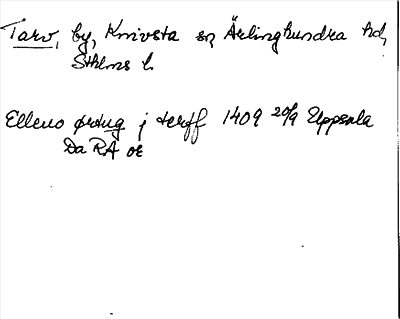 Tarv, by, Knivsta sn, Ärlinghundra hd,
Sthlms l.
Elleuo ørtug j terff 1409 20/9 Uppsala
Da RA oe